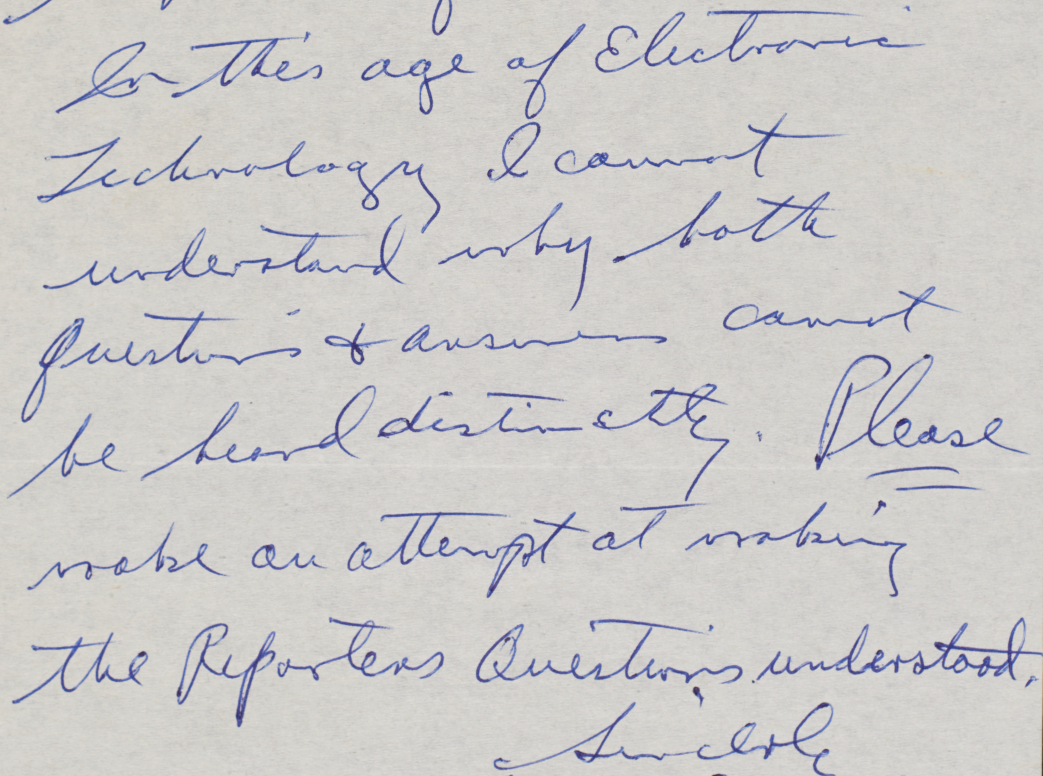 In this age of Electronic
Technology I cannot
understand why both
Questions & answers cannot
be heard distinctly. Please
make an attempt at making
the Reporters Questions understood.
Sincerly